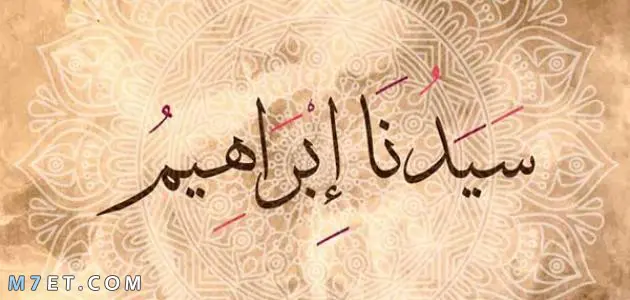 سَيَدُنَا إِبْرَاهِيمُ
M7ET.COM